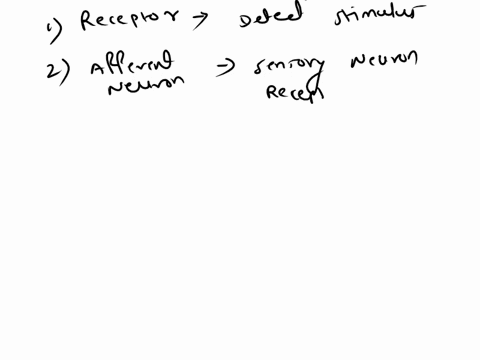 1) Receptor → Detect stimulus
2) Afferent → Sensory Neuron
Neuron Recep